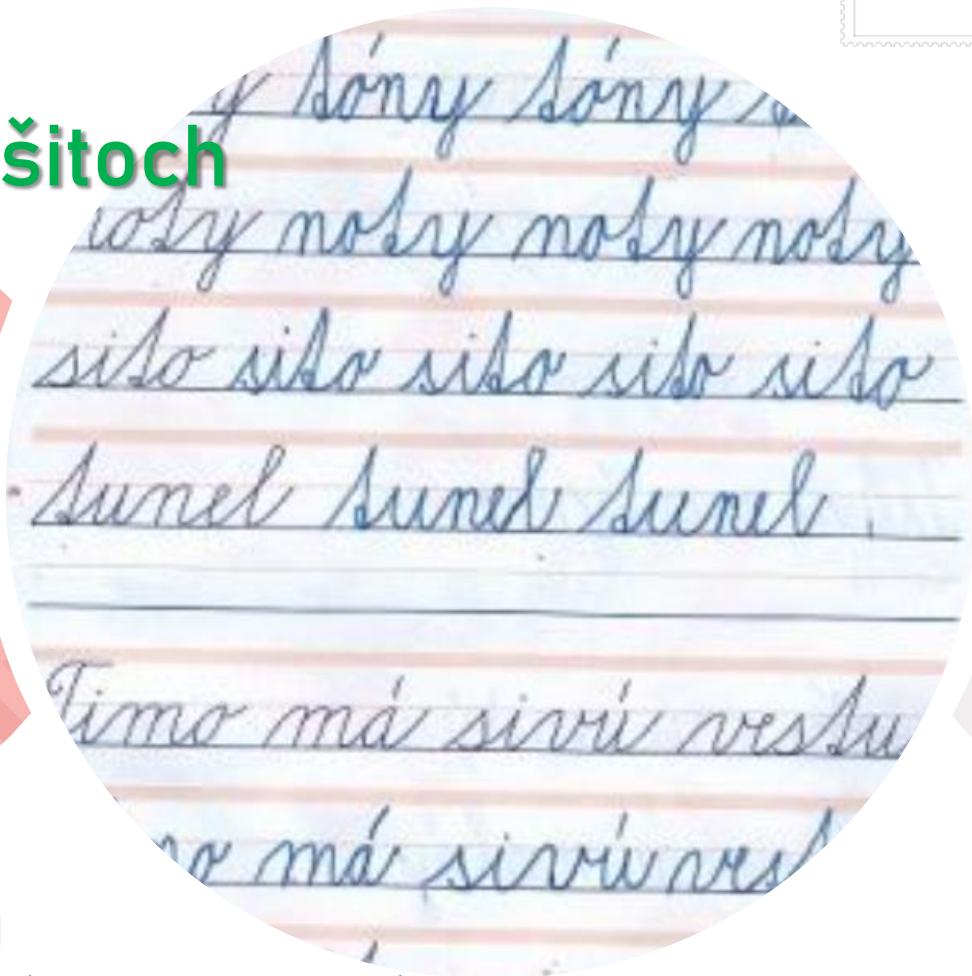 y tóny tóny
šitoch
noty noty noty noty
sito sito sito sito sito
tunel tunel tunel
Timo má sivú vestu
mo má sivú vest